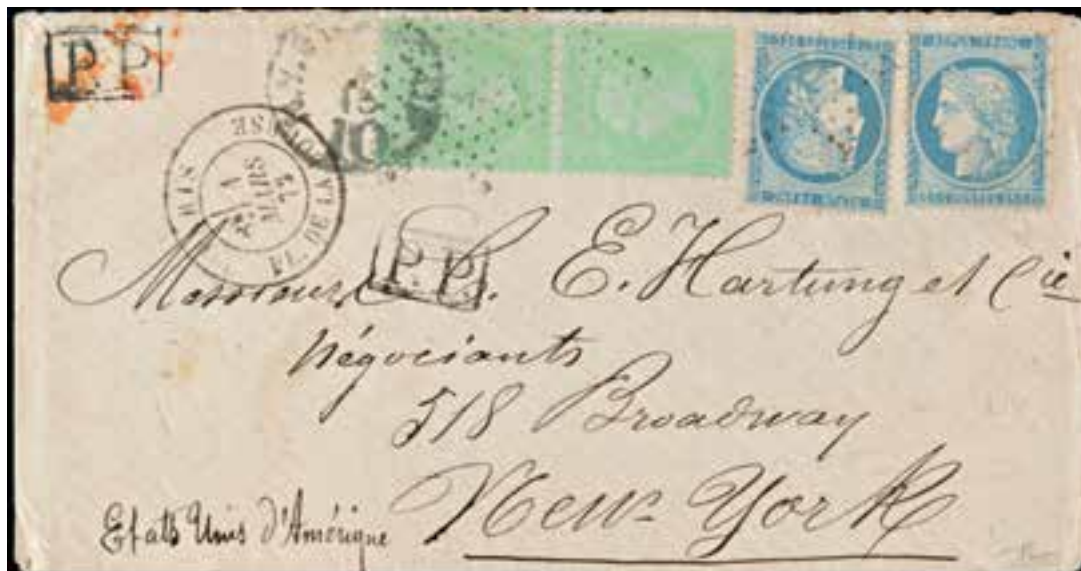 P.P.
10
PL. DE LA BOURSE
MARS
P.P.
Messieurs C. E. Hartung et Cie
Négociants
518 Broadway
New-York
Etats Unis d'Amérique